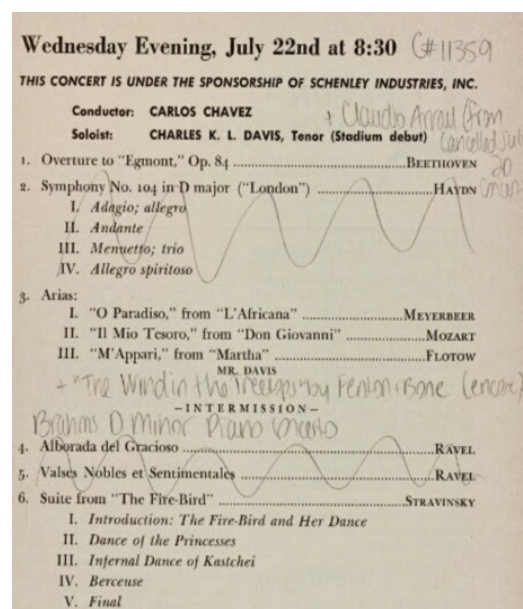 Wednesday Evening, July 22nd at 8:30 C#11359
THIS CONCERT IS UNDER THE SPONSORSHIP OF SCHENLEY INDUSTRIES, INC.
Conductor: CARLOS CHAVEZ + Claudio Arrau (from
Soloist: CHARLES K. L. DAVIS, Tenor (Stadium debut) cancelled July
1. Overture to "Egmont," Op. 84 ........ BEETHOVEN 20
2. Symphony No. 104 in D major ("London") ........ HAYDN
I. Adagio; allegro
II. Andante
III. Menuetto; trio
IV. Allegro spiritoso
3. Arias:
I. "O Paradiso," from "L'Africana" ........ MEYERBEER
II. "Il Mio Tesoro," from "Don Giovanni" ........ MOZART
III. "M'Appari," from "Martha" ........ FLOTOW
MR. DAVIS
+ "The Wind in the Treetops" by Fenton + Bone (encore)
–INTERMISSION–
Brahms D Minor Piano Concerto
4. Alborada del Gracioso ........ RAVEL
5. Valses Nobles et Sentimentales ........ RAVEL
6. Suite from "The Fire-Bird" ........ STRAVINSKY
I. Introduction: The Fire-Bird and Her Dance
II. Dance of the Princesses
III. Infernal Dance of Kastchei
IV. Berceuse
V. Final